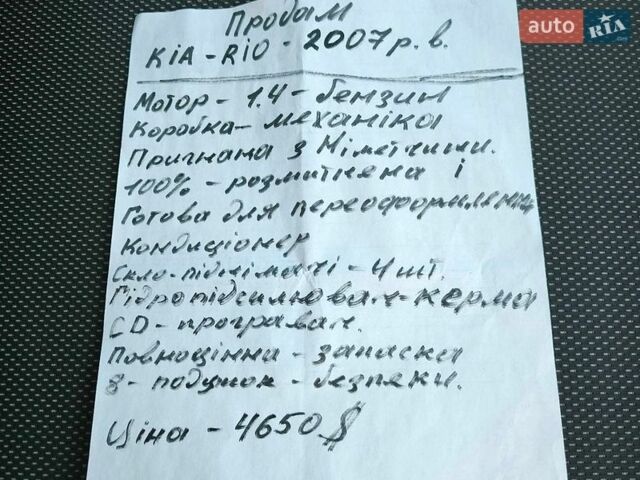 Продам
KIA - RIO - 2007 р. в.
Мотор - 1.4 - бензин
Коробка - механіка
Пригнана з Німетчини.
100% - розмитнена і
Готова для переоформлення
Кондиціонер
Скло-підіймачі - 4 шт.
Гідропідсилювач - керма
CD - програвач.
Повноцінна - запаска
8 - подушок - безпеки.
Ціна - 4650 $
auto RIA
.com